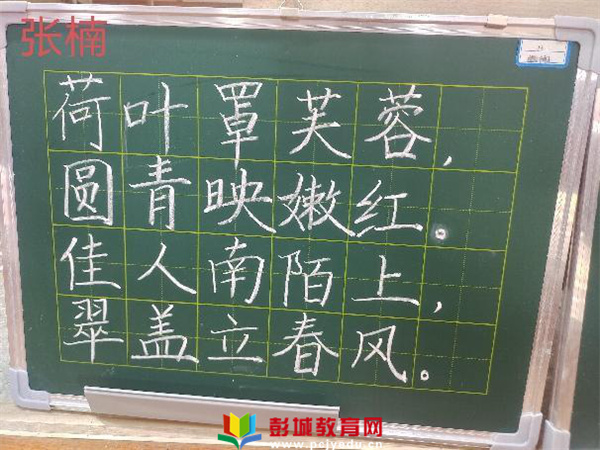 张楠
荷叶罩芙蓉，
圆青映嫩红。
佳人南陌上，
翠盖立春风。
彭城教育网
www.pcjyedu.cn